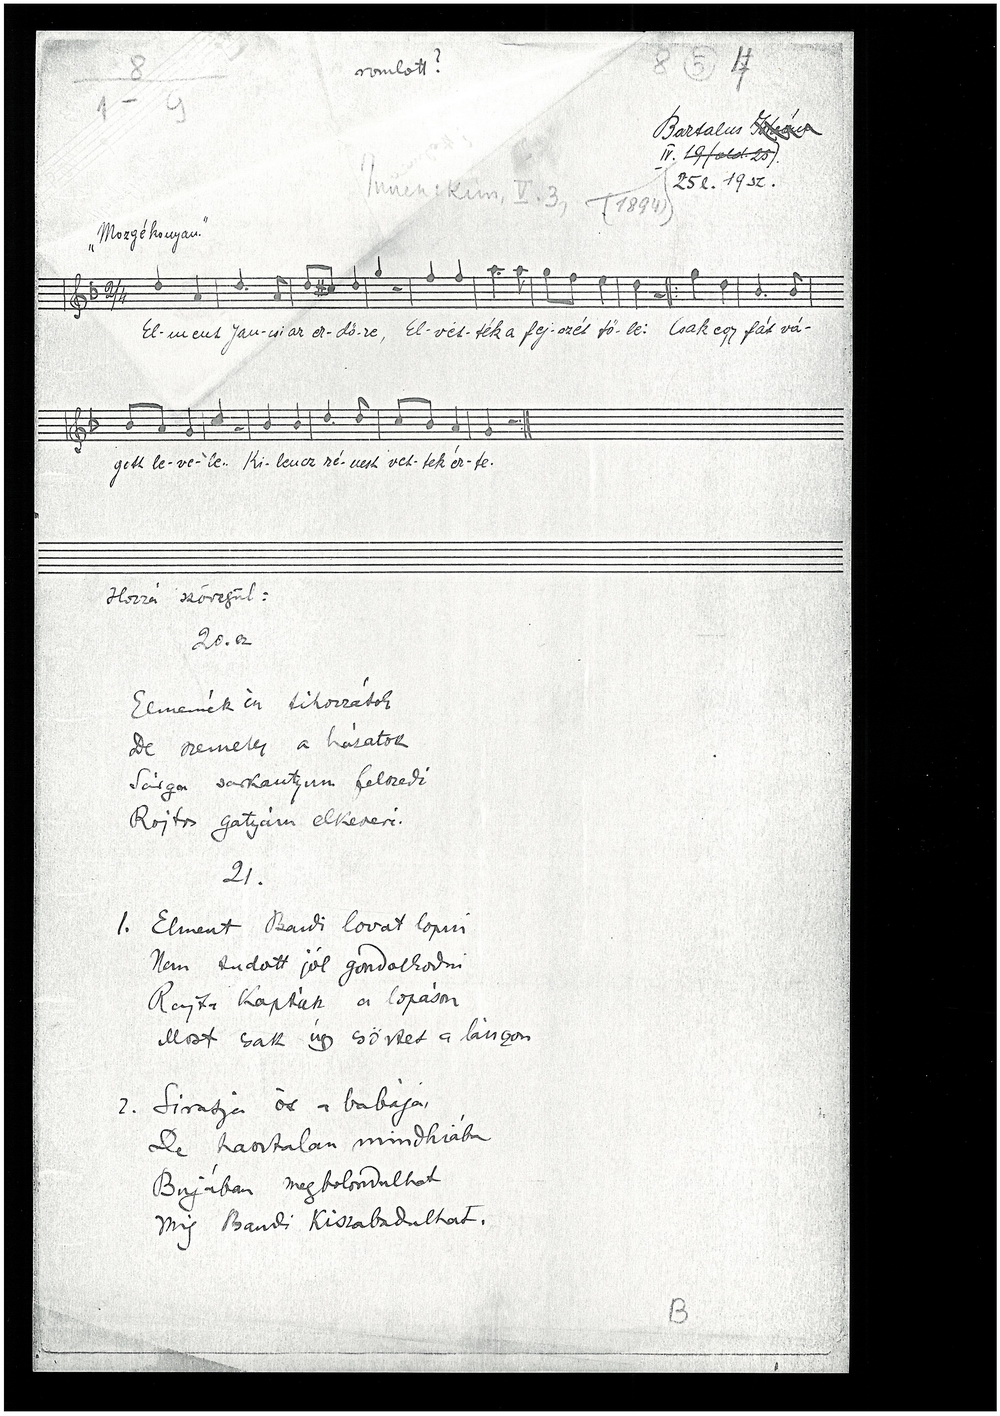 8
1 - 9
romlott?
8 5 4
Bartalus István
IV. 19 (old. 25).
25 l. 19 sz.
V. 3, (1894)
"Mozgékonyan."
2/4
El-ment Jan-csi az er-dő-re, El-vet-ték a fej-szét tő-le: Csak egy fát vá-
gott le-ve-le.. Ki-lencz ré-nest vet-tek ér-te.
Hozzá szövegül:
20. sz
Elmennék én tihozzátok
De szemetes a házatok
Sárga sarkantyum felszedi
Rojtos gatyám elkeveri.
21.
1. Elment Bandi lovat lopni
Nem tudott jól gondolkodni
Rajta kapták a lopáson
Most csak úgy csörtet a lánczon
2. Siratja őt a babája,
De hasztalan mindhiába
Bujában megbolondulhat
Mig Bandi kiszabadulhat.
B